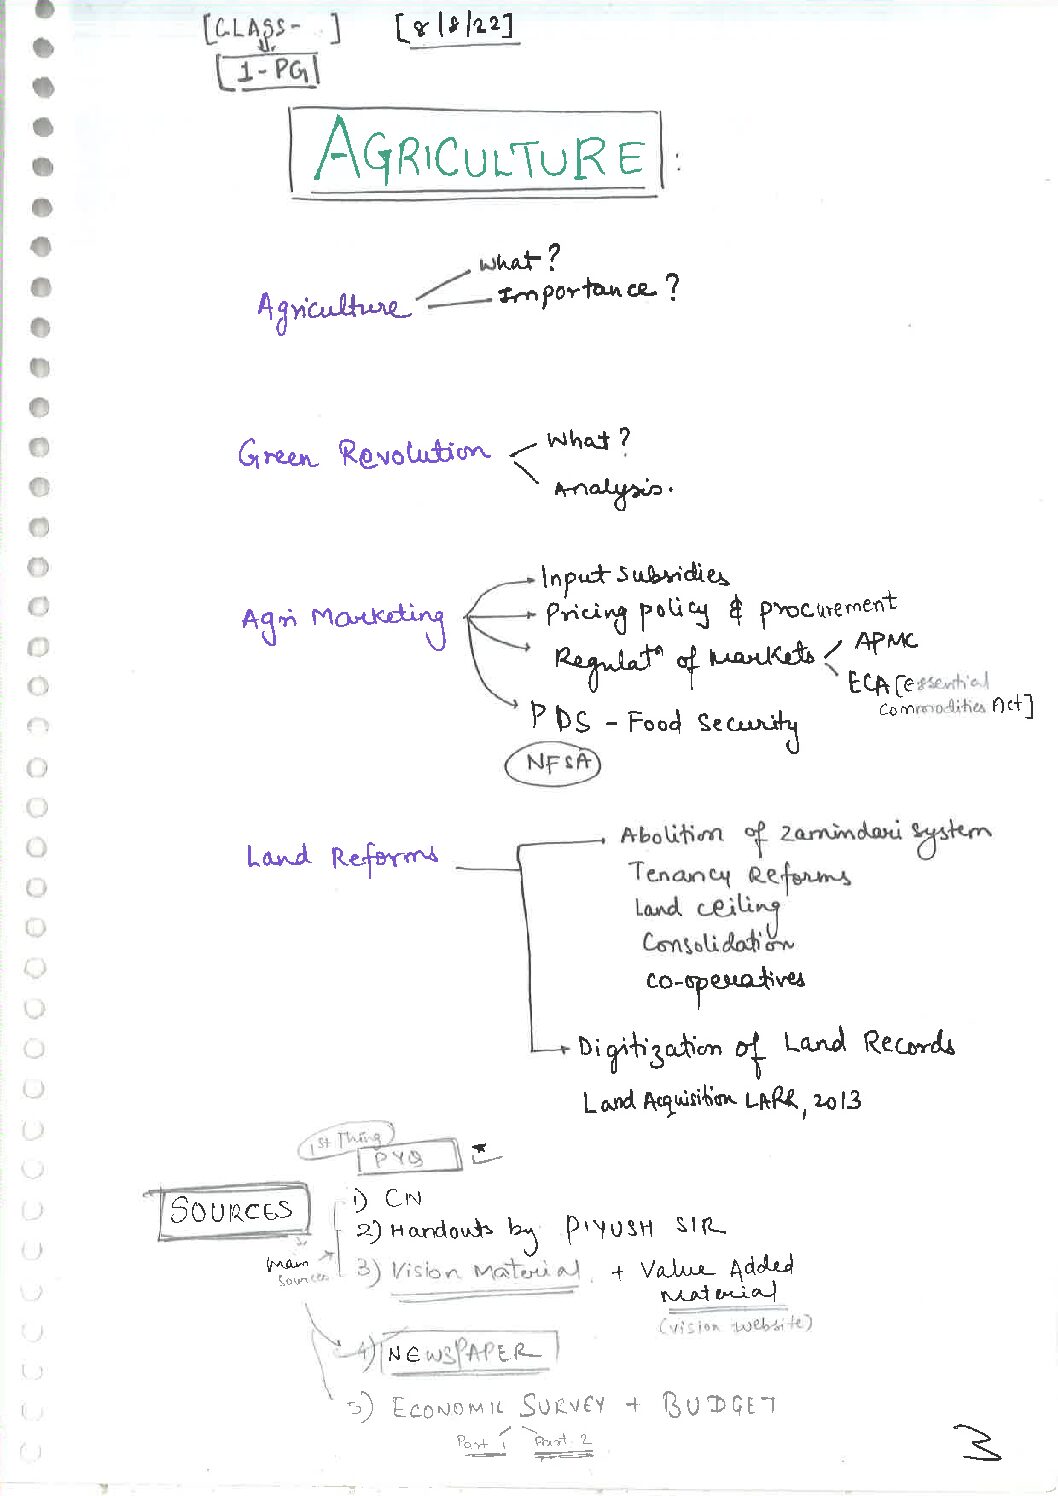 [CLASS- ] [8/8/22]
[1-PG]
AGRICULTURE :
What?
Agriculture Importance?
What?
Green Revolution
Analysis.
Input Subsidies
Agri Marketing Pricing policy & procurement
Regulatⁿ of Markets APMC
ECA [essential
commodities Act]
PDS - Food Security
NFSA
Land Reforms Abolition of zamindari system
Tenancy Reforms
Land ceiling
Consolidation
co-operatives
Digitization of Land Records
Land Acquisition LARR, 2013
1st Thing
PYQ
SOURCES 1) CN
2) Handouts by PIYUSH SIR
Main
Sources 3) Vision Material + Value Added
Material
(vision website)
4) NEWSPAPER
5) ECONOMIC SURVEY + BUDGET
Part 1 Part 2
3